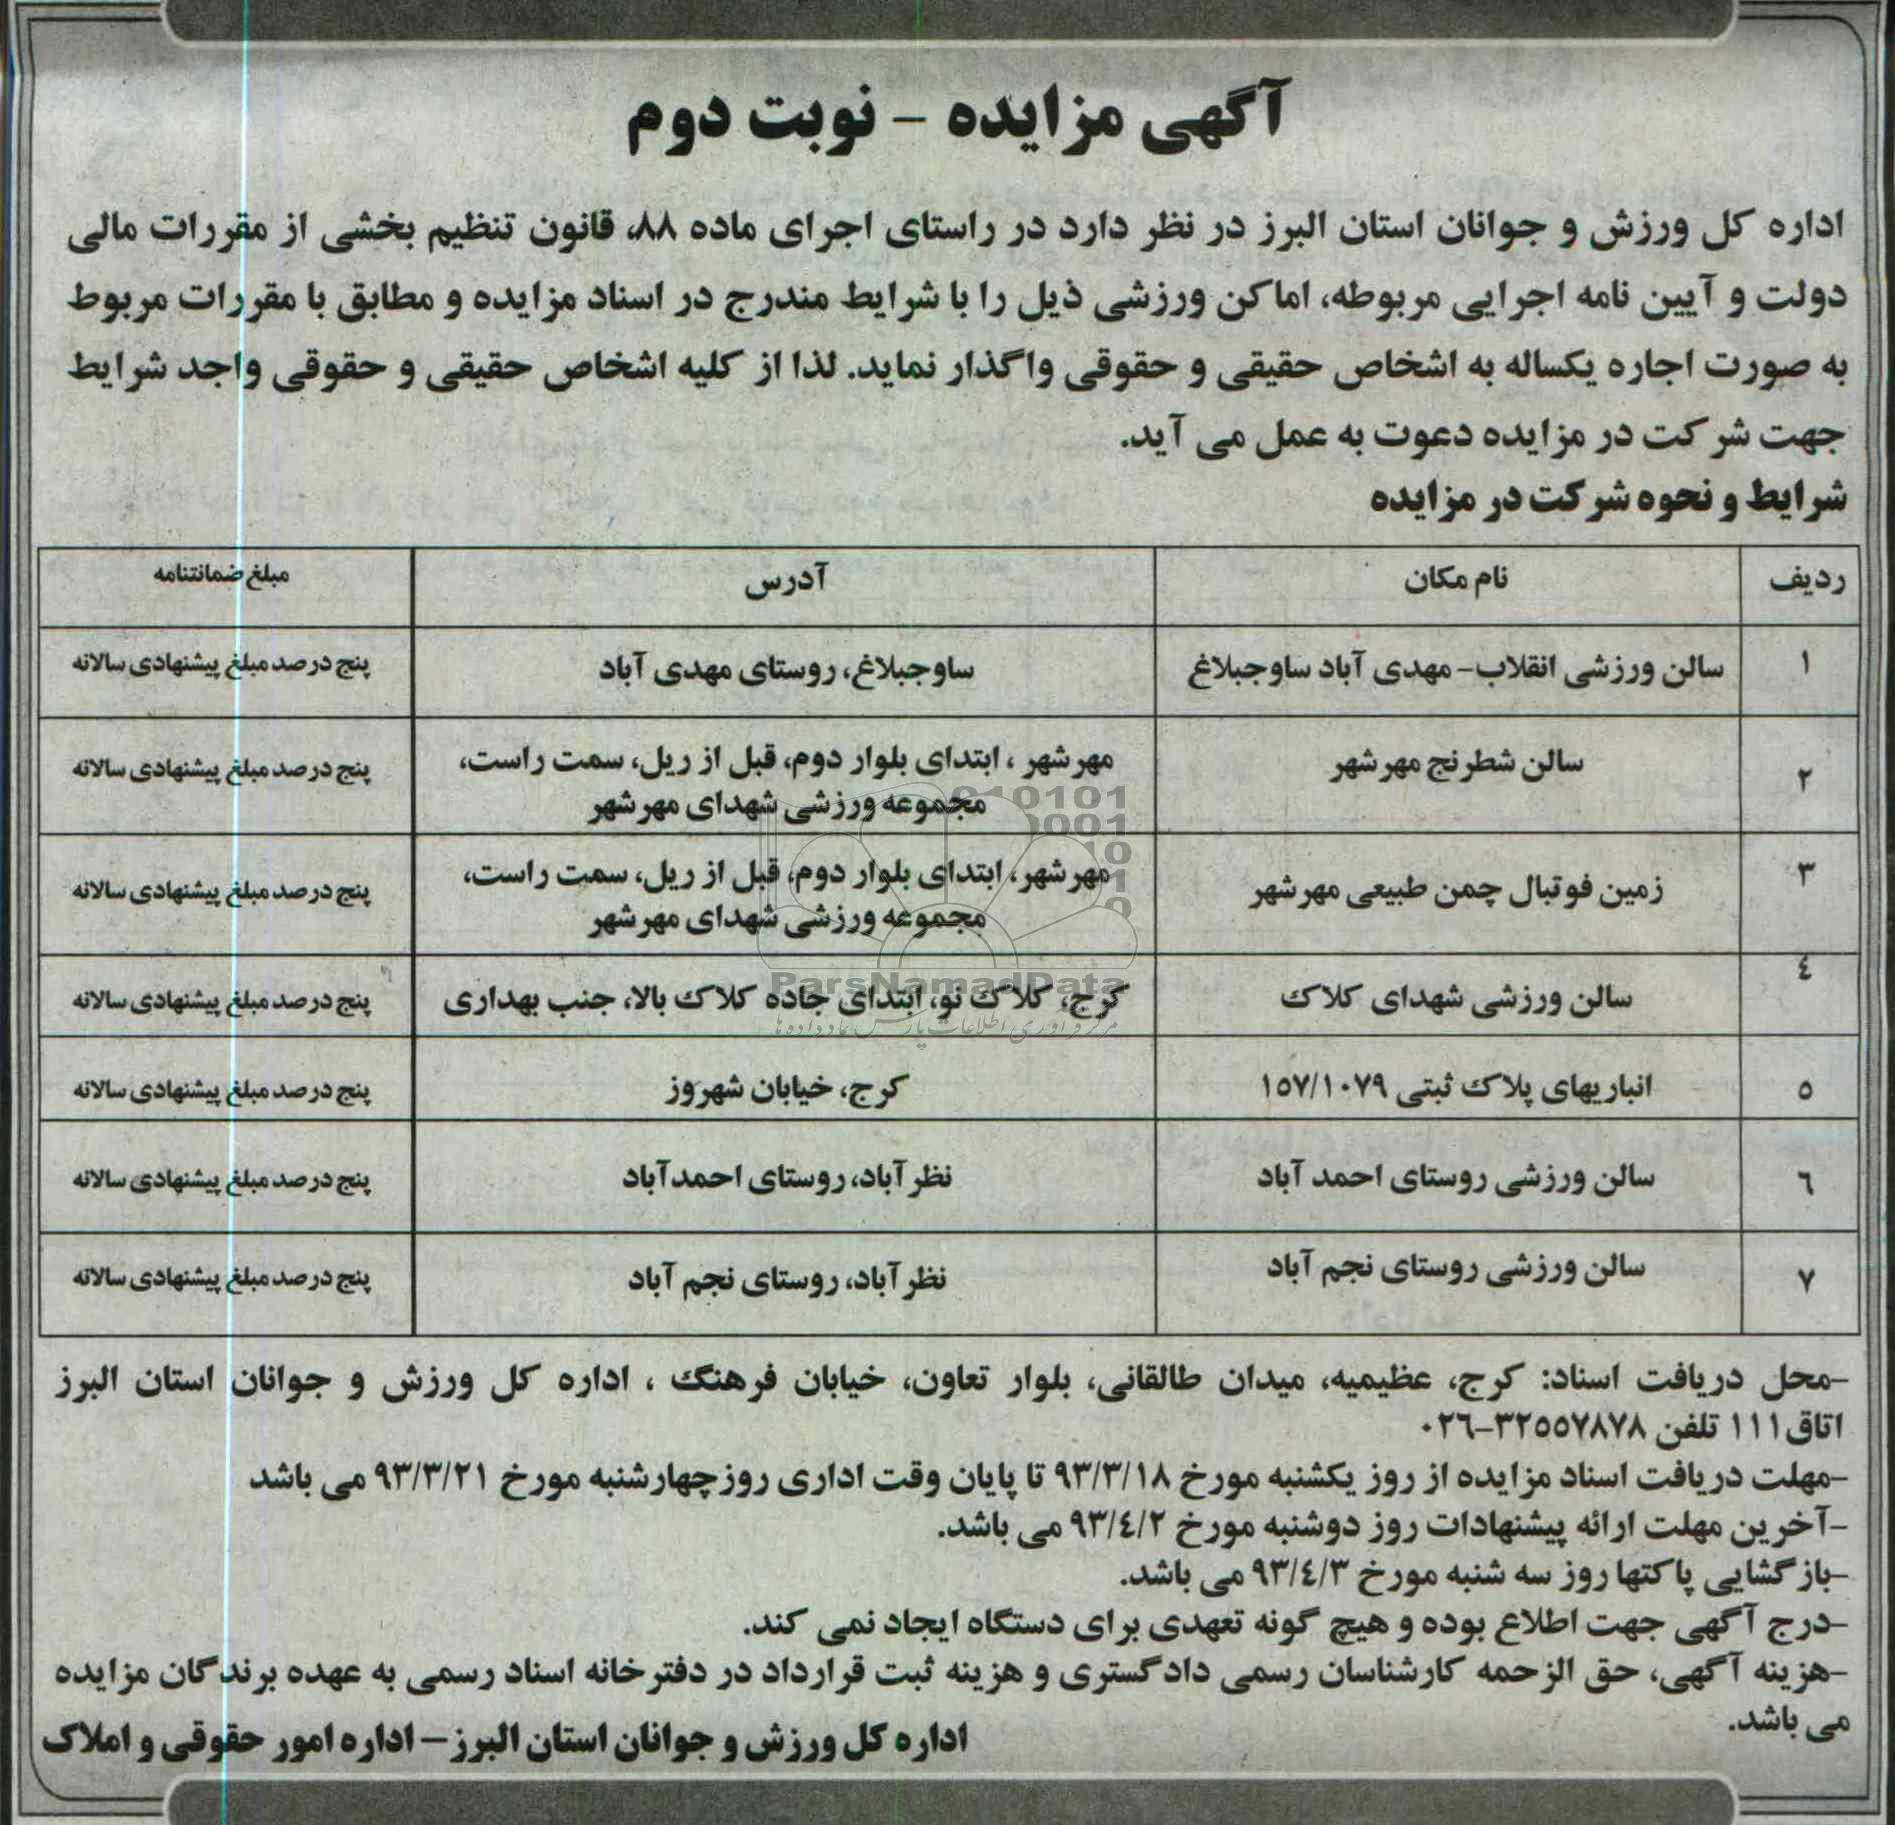 آگهی مزایده - نوبت دوم
اداره کل ورزش و جوانان استان البرز در نظر دارد در راستای اجرای ماده ۸۸، قانون تنظیم بخشی از مقررات مالی
دولت و آیین نامه اجرایی مربوطه، اماکن ورزشی ذیل را با شرایط مندرج در اسناد مزایده و مطابق با مقررات مربوط
به صورت اجاره یکساله به اشخاص حقیقی و حقوقی واگذار نماید. لذا از کلیه اشخاص حقیقی و حقوقی واجد شرایط
جهت شرکت در مزایده دعوت به عمل می آید.
شرایط و نحوه شرکت در مزایده
ردیف نام مکان آدرس مبلغ ضمانتنامه
۱ سالن ورزشی انقلاب- مهدی آباد ساوجبلاغ ساوجبلاغ، روستای مهدی آباد پنج درصد مبلغ پیشنهادی سالانه
۲ سالن شطرنج مهرشهر مهرشهر ، ابتدای بلوار دوم، قبل از ریل، سمت راست، پنج درصد مبلغ پیشنهادی سالانه
مجموعه ورزشی شهدای مهرشهر
۳ زمین فوتبال چمن طبیعی مهرشهر مهرشهر، ابتدای بلوار دوم، قبل از ریل، سمت راست، پنج درصد مبلغ پیشنهادی سالانه
مجموعه ورزشی شهدای مهرشهر
٤ سالن ورزشی شهدای کلاک کرج، کلاک نو، ابتدای جاده کلاک بالا، جنب بهداری پنج درصد مبلغ پیشنهادی سالانه
٥ انباریهای پلاک ثبتی ١٥٧/١٠٧٩ کرج، خیابان شهروز پنج درصد مبلغ پیشنهادی سالانه
٦ سالن ورزشی روستای احمد آباد نظرآباد، روستای احمدآباد پنج درصد مبلغ پیشنهادی سالانه
۷ سالن ورزشی روستای نجم آباد نظرآباد، روستای نجم آباد پنج درصد مبلغ پیشنهادی سالانه
010101
0001
10
1
0
ParsNamadData
مرکز فرآوری اطلاعات پارس نماد داده ها
-محل دریافت اسناد: کرج، عظیمیه، میدان طالقانی، بلوار تعاون، خیابان فرهنگ ، اداره کل ورزش و جوانان استان البرز
اتاق ۱۱۱ تلفن ۳۲۵۵۷۸۷۸-۰۲۶
-مهلت دریافت اسناد مزایده از روز یکشنبه مورخ ۹۳/۳/۱۸ تا پایان وقت اداری روزچهارشنبه مورخ ۹۳/۳/۲۱ می باشد
-آخرین مهلت ارائه پیشنهادات روز دوشنبه مورخ ۹۳/٤/۲ می باشد.
-بازگشایی پاکتها روز سه شنبه مورخ ۹۳/٤/۳ می باشد.
-درج آگهی جهت اطلاع بوده و هیچ گونه تعهدی برای دستگاه ایجاد نمی کند.
-هزینه آگهی، حق الزحمه کارشناسان رسمی دادگستری و هزینه ثبت قرارداد در دفترخانه اسناد رسمی به عهده برندگان مزایده
می باشد.
اداره کل ورزش و جوانان استان البرز - اداره امور حقوقی و املاک